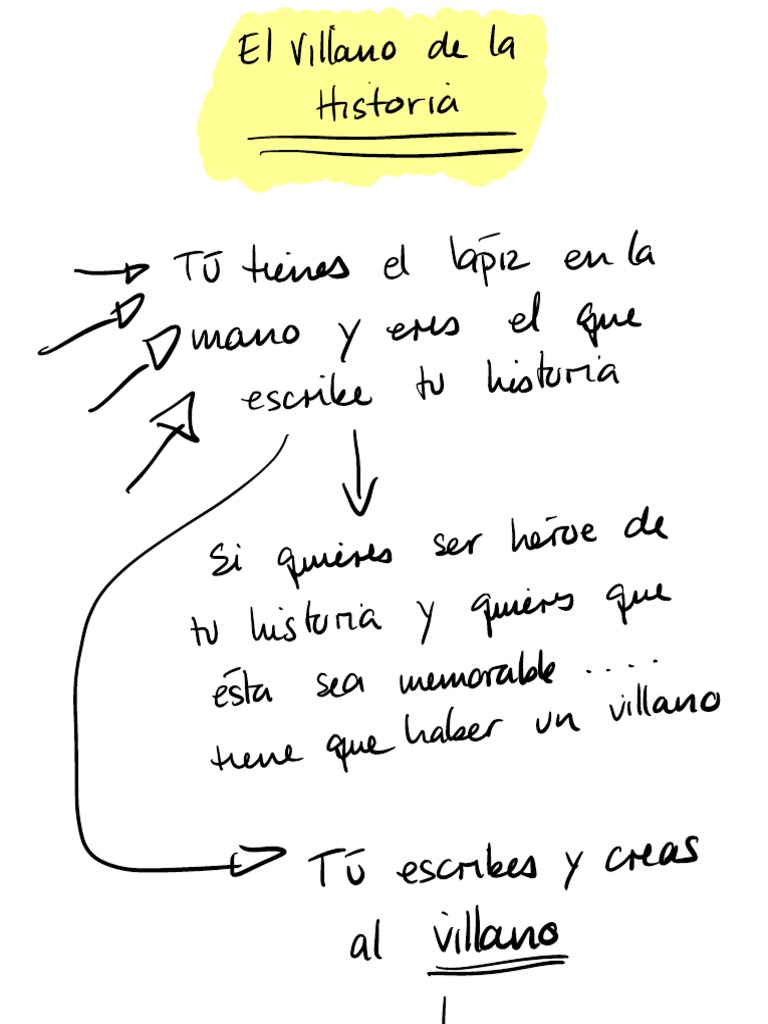 El Villano de la
Historia
Tú tienes el lápiz en la
mano y eres el que
escribe tu historia
Si quieres ser héroe de
tu historia y quieres que
ésta sea memorable .....
tiene que haber un villano
Tú escribes y creas
al villano